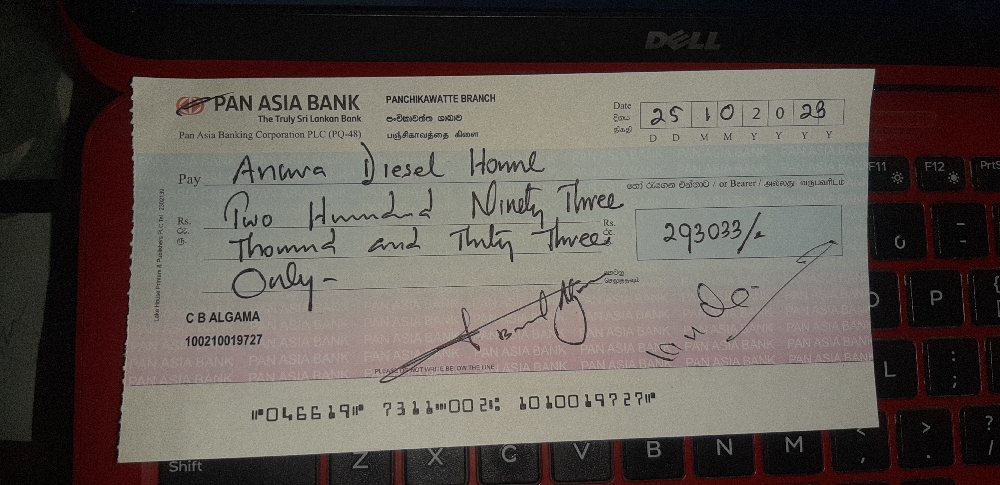 DELL
PAN ASIA BANK
The Truly Sri Lankan Bank
Pan Asia Banking Corporation PLC (PQ-48)
PANCHIKAWATTE BRANCH
පංචිකාවත්ත ශාඛාව
பஞ்சிகாவத்தை கிளை
Date 25 10 20 23
දිනය
திகதி
D D M M Y Y Y Y
Pay Diesel
හෝ රැගෙන එන්නාට / or Bearer / அல்லது வருபவரிடம்
Rs. Two Hundred Ninety Three
රු.
ரூ.
Thousand and Thirty Three
Rs. 293033/-
රු.
Only-
C B ALGAMA
100210019727
PLEASE DO NOT WRITE BELOW THE LINE
PAN ASIA BANK
⑈046619⑈ 7311⑉002⑆ 1010019727⑈
F11
F12
PrtS
0
P
L
Shift
Z
X
C
V
B
N
M